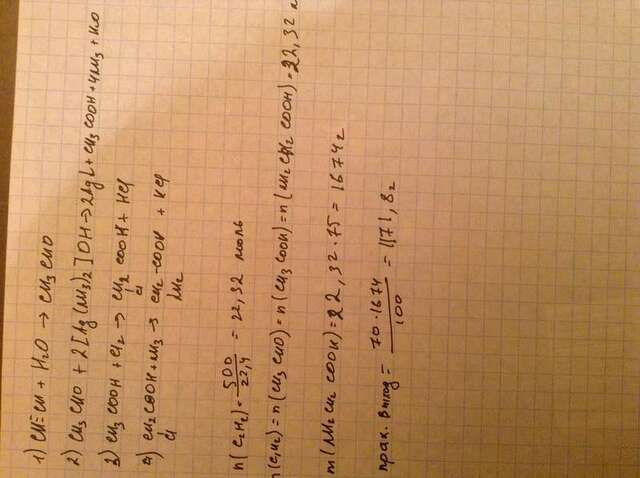 1) CH≡CH + H₂O → CH₃CHO
2) CH₃CHO + 2[Ag(NH₃)₂]OH → 2Ag↓ + CH₃COOH + 4NH₃ + H₂O
3) CH₃COOH + Cl₂ → CH₂COOH + HCl
Cl
4) CH₂COOH + NH₃ → CH₂-COOH + HCl
Cl NH₂
n(C₂H₂) = 500/22,4 = 22,32 моль
n(C₂H₂) = n(CH₃CHO) = n(CH₃COOH) = n(NH₂CH₂COOH) = 22,32
m(NH₂CH₂COOH) = 22,32·75 = 1674 г
прак. выход = 70·1674/100 = 1171,8 г